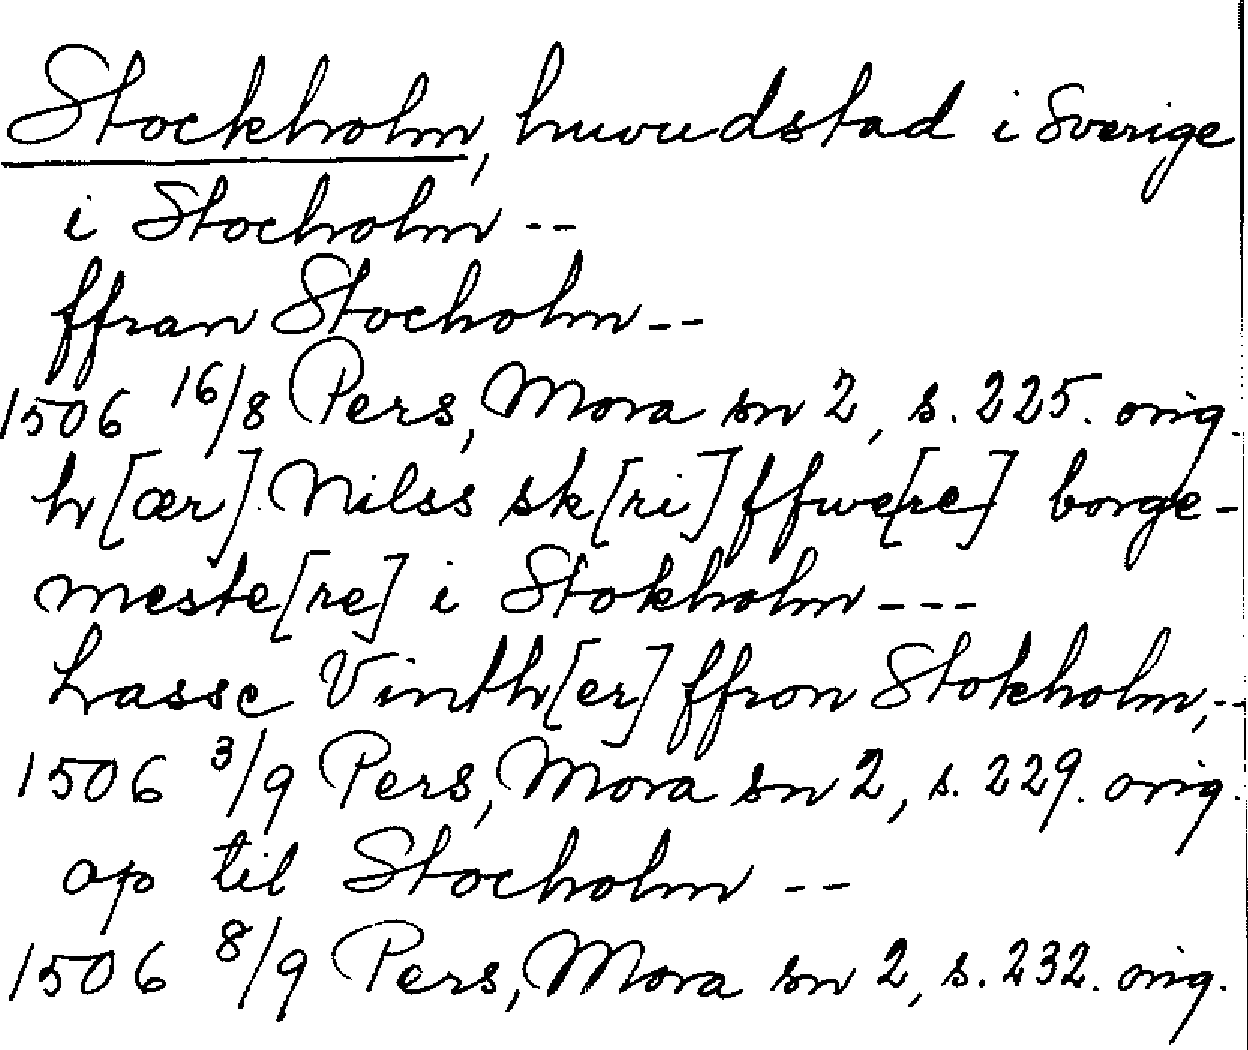 Stockholm, huvudstad i Sverige
i Stocholm --
ffran Stocholm --
1506 16/8 Pers, Mora sn 2, s. 225. orig.
h[ær] Nilss sk[ri]ffwe[re] borge-
meste[re] i Stokholm ---
Lasse Vinth[er] ffron Stokholm, --
1506 3/9 Pers, Mora sn 2, s. 229. orig.
op til Stocholm --
1506 8/9 Pers, Mora sn 2, s. 232. orig.